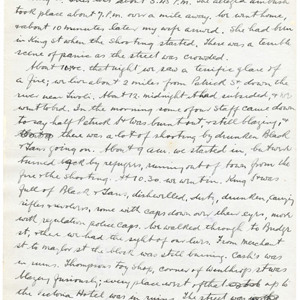 took place about 7 p.m. over a mile away. We went home,
about 10 minutes later my wife arrived. She had been
in King St when the shooting started. There was a terrible
scene of panic as the street was crowded.
About 10 that night, we saw a terrific glare of
a fire; we live about 2 miles from Patrick St down the
river near Tivoli. About 12 midnight it had subsided, & we
went to bed. In the morning some of our staff came down
to say half Patrick St was burnt out, still blazing, &
there was a lot of shooting by drunken Black
& Tans going on. About 9 am. we started in, but were
turned back by refugees, running out of town from the
fire & the shooting. At 10.30 we went in. King St was
full of Black & Tans, dishevelled, dirty, drunken, carrying
rifles & revolvers, some with caps down over their eyes, most
with regulation police caps. We walked through to Bridge
St, where we had the sight of our lives. From Merchant
St to Maylor St the block was still burning. Cash's was
in ruins. Thompsons Toy Shop, corner of Winthrop St was
blazing furiously; every place west of that up to
the Victoria Hotel was in ruins. The street was